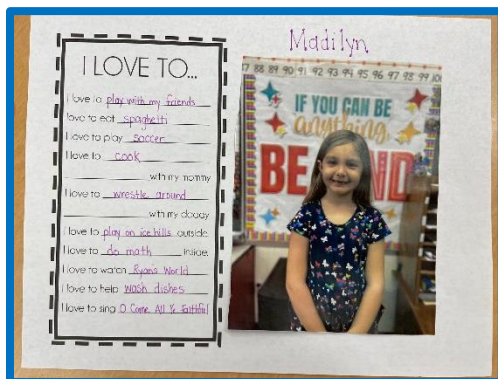 Madilyn
I LOVE TO...
I love to play with my friends
I love to eat spaghetti
I love to play soccer
I love to cook
with my mommy
I love to wrestle around
with my daddy
I love to play on ice hills outside.
I love to do math inside.
I love to watch Ryans World
I love to help wash dishes
I love to sing O Come All Ye Faithful
87 88 89 90 91 92 93 94 95 96 97 98 99 100
IF YOU CAN BE
anything,
BE KIND